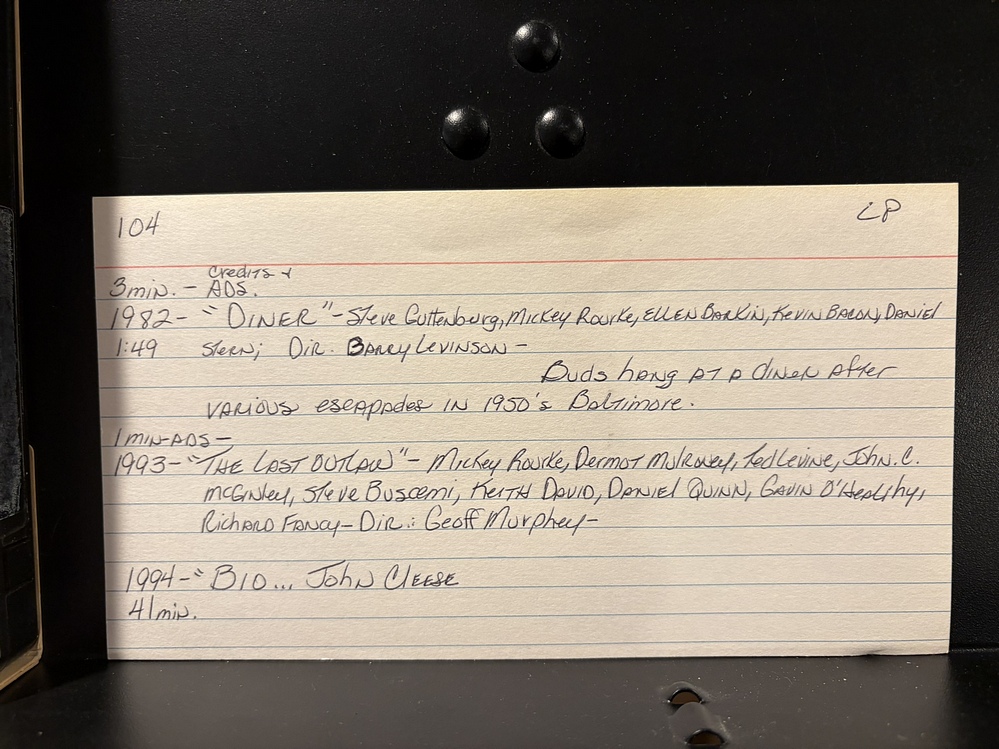 104 LP
Credits +
3 min. - ADS.
1982- "DINER" - Steve Guttenburg, Mickey Rourke, ELLEN BARKIN, KEVIN BACON, DANIEL
1:49 STERN; DIR. BARRY LEVINSON -
Buds hang AT A diner After
VARIOUS escappades IN 1950's Baltimore.
1 min-ADS-
1993-"THE LAST OUTLAW" - Mickey Rourke, Dermot Mulroney, Ted Levine, John. C.
McGinley, Steve Buscemi, KEITH DAVID, DANIEL QUINN, GAVIN O'Healihy,
RICHARD FANCY- DIR.: Geoff Murphey-
1994-"BIO... John CLEESE
41 min.